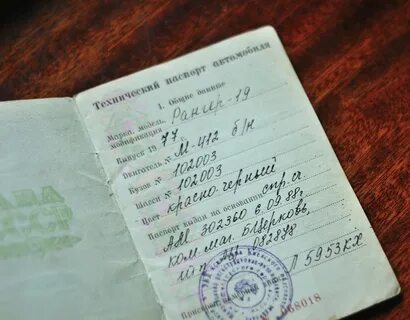 Технический паспорт автомобиля
1. Общие данные
Марка, модель, Рангер-19
модификация
Выпуск 1977
Двигатель № М-412 б/н
Кузов № 102003
Шасси № 102003
Цвет красно-черный
Паспорт выдан на основании спр. сч
АМ 302360 6.09.88г.
ком. маг. Б Церковь,
082878
Л 5953КХ
068018